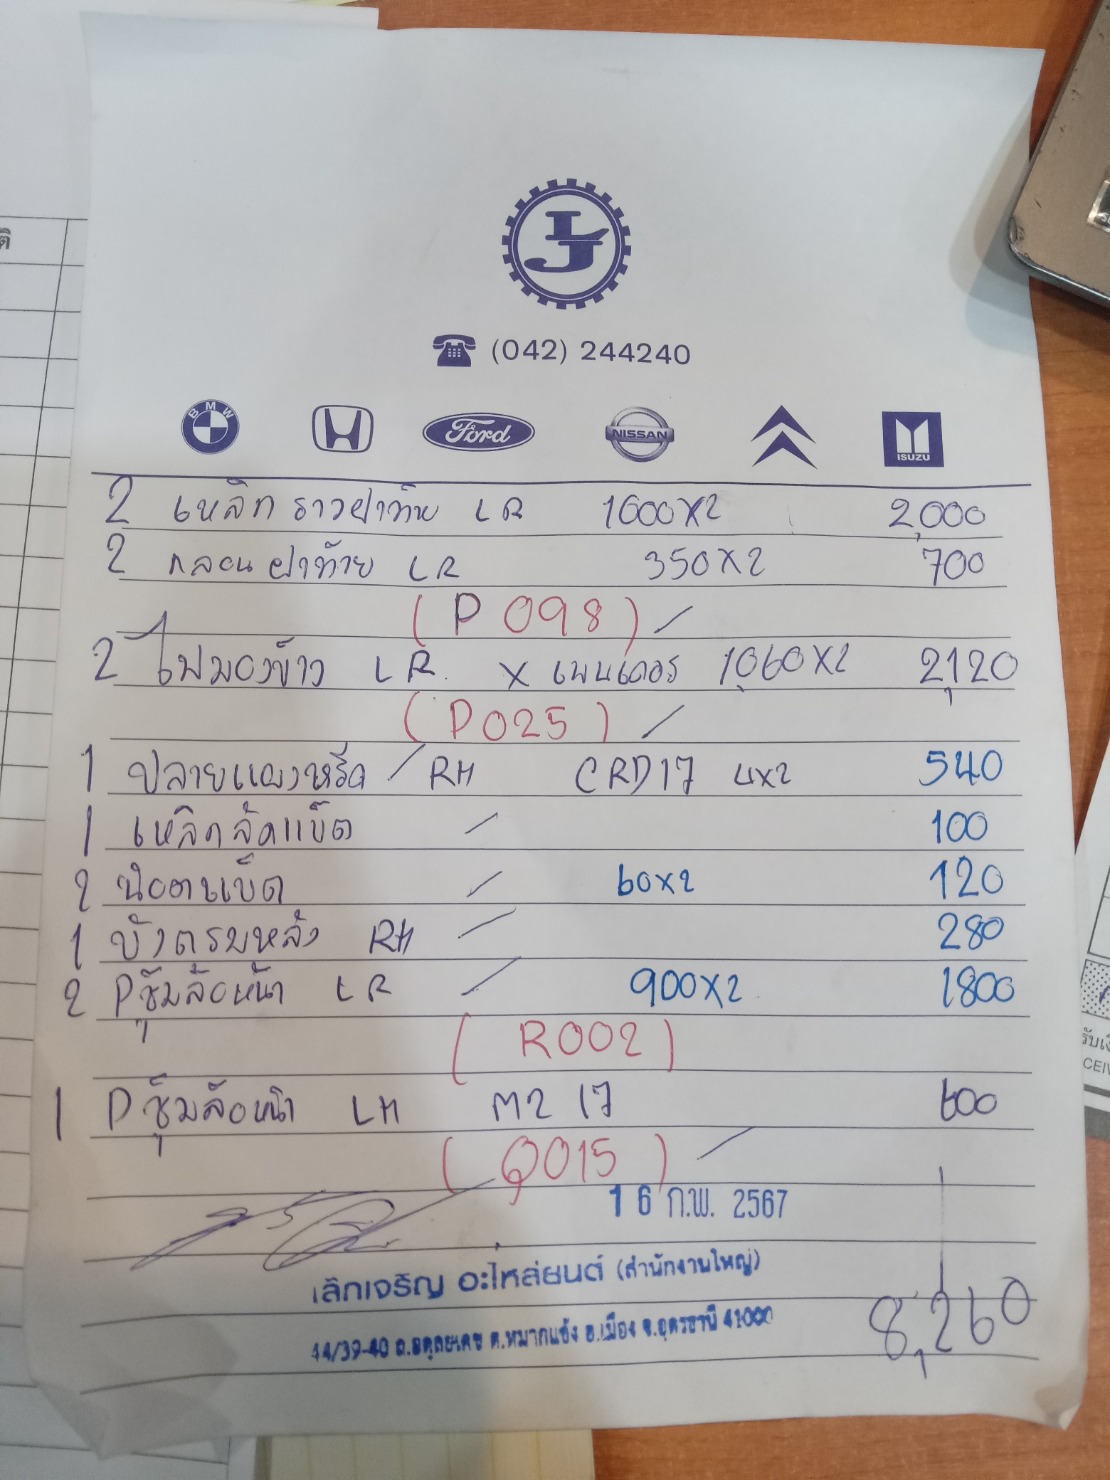 LJ
(042) 244240
BMW Ford NISSAN ISUZU
2 เหล็กราวฝาท้าย LR 1000X2 2,000
2 กลอนฝาท้าย LR 350X2 700
(P 098) /
2 ไฟมองข้าง LR. X เฟนเดอร์ 1,060X2 2,120
(P025) /
1 ปลายแผงหรีด / RH CRD17 4x2 540
1 เหล็กลัดแบ็ต / 100
2 น๊อตแบ็ต / 60x2 120
1 บังตรมหลัง RH / 280
2 Pซุ้มล้อหน้า LR / 900X2 1800
(R002)
1 Pซุ้มล้อหน้า LH M2 17 600
(Q015) /
16 ก.พ. 2567
เลิกเจริญ อะไหล่ยนต์ (สำนักงานใหญ่)
44/39-40 ถ.อดุลยเดช ต.หมากแข้ง อ.เมือง จ.อุดรธานี 41000
8,260
ติ
CEIV